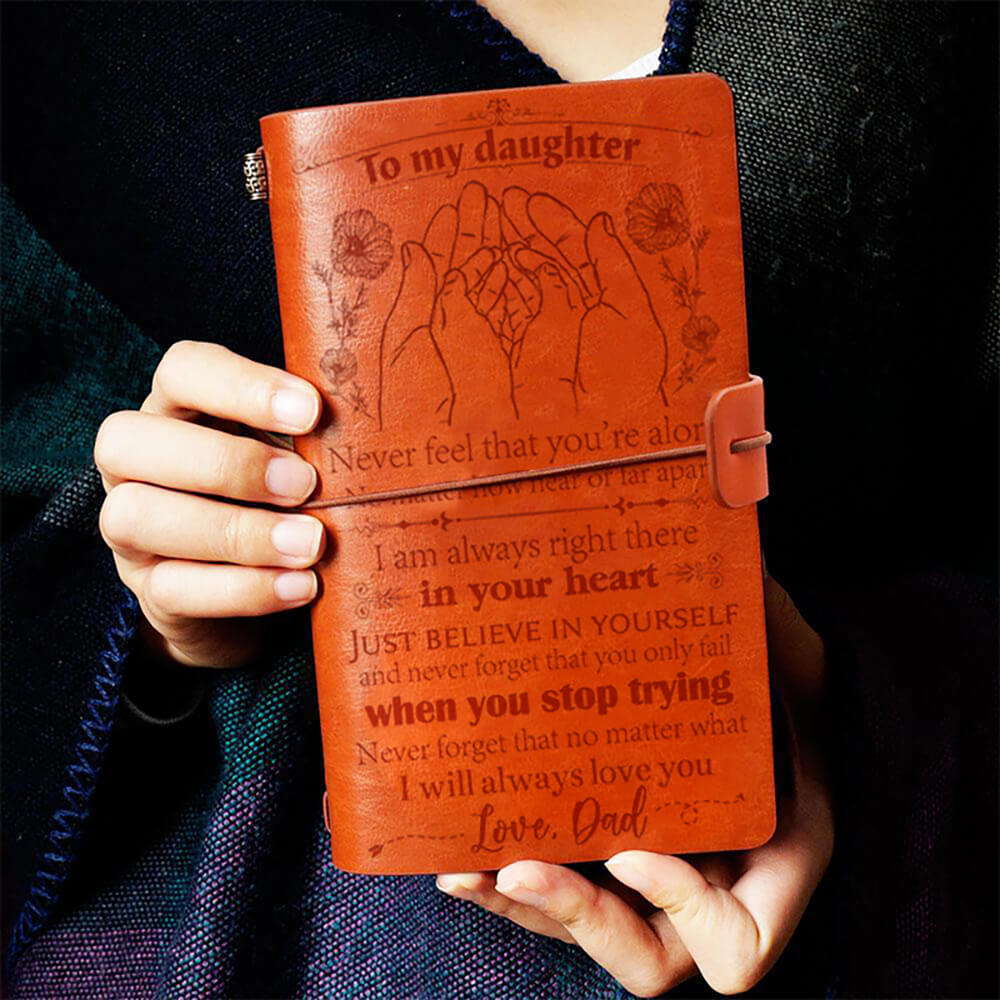 To my daughter
Never feel that you're alon
No matter how near or far apart
I am always right there
in your heart
JUST BELIEVE IN YOURSELF
and never forget that you only fail
when you stop trying
Never forget that no matter what
I will always love you
Love, Dad